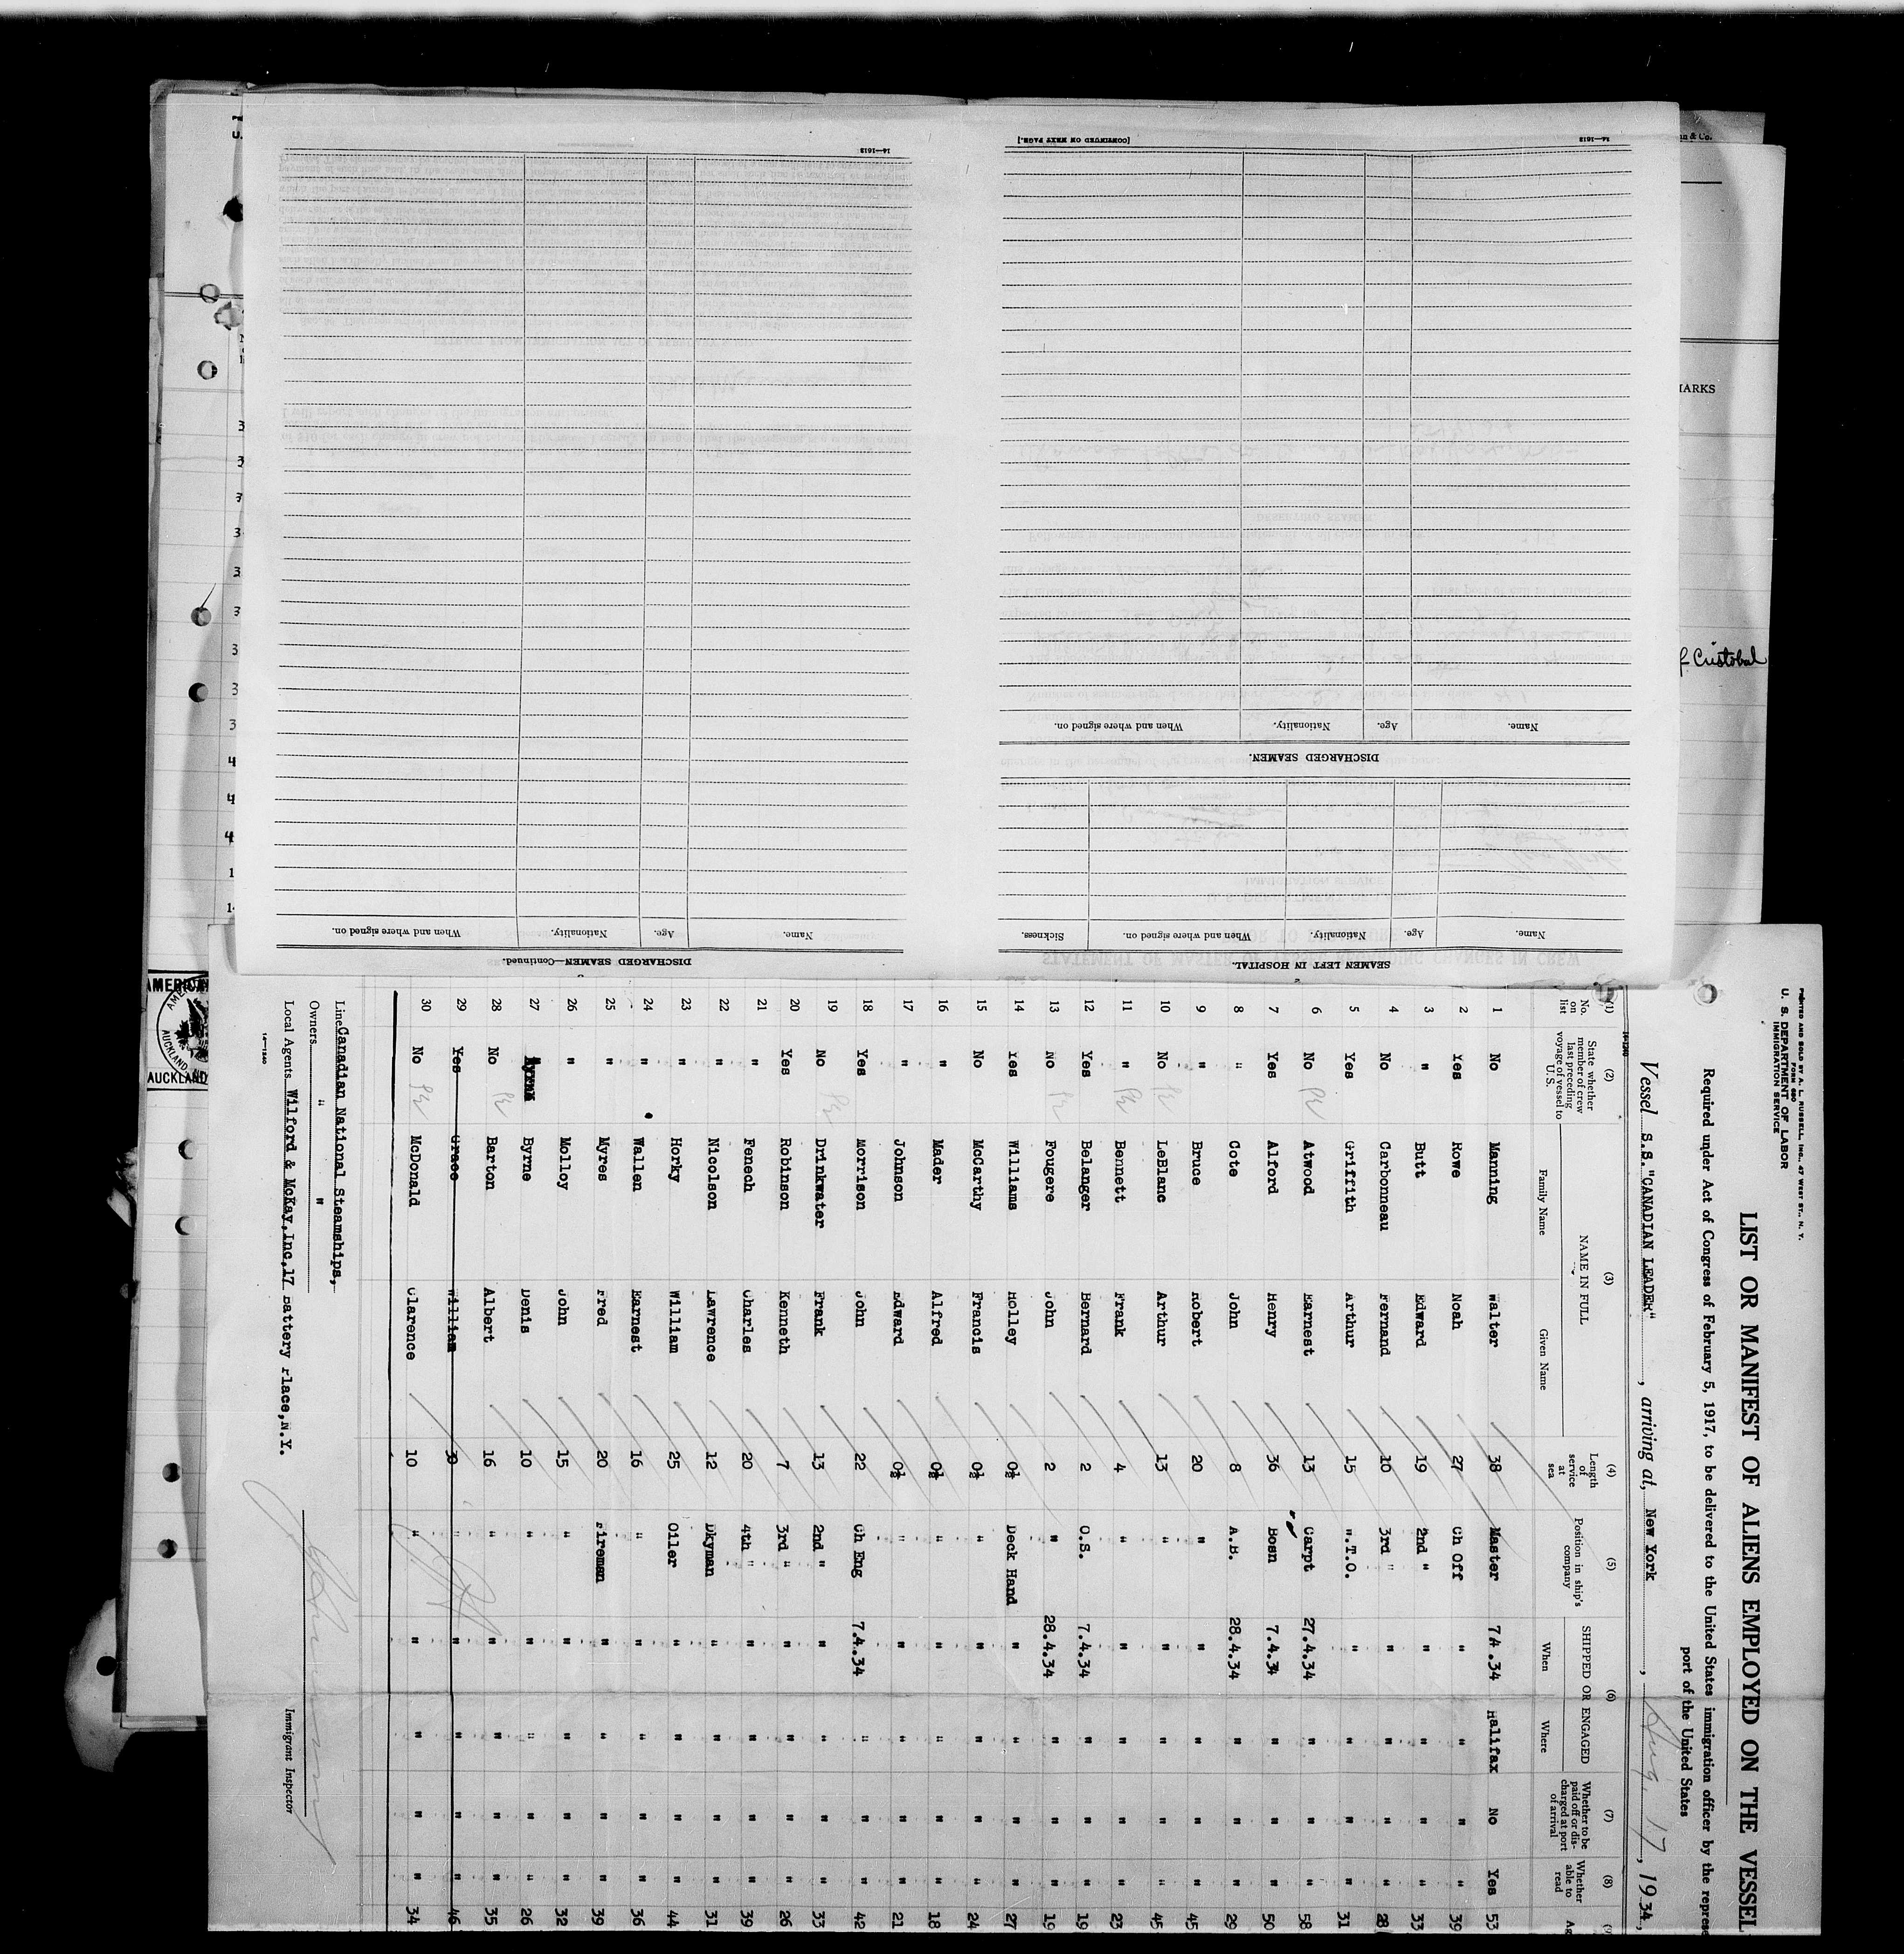 PRINTED AND SOLD BY A. L. RUSSELL, INC., 47 WEST ST., N. Y.
FORM 680
U. S. DEPARTMENT OF LABOR
IMMIGRATION SERVICE
LIST OR MANIFEST OF ALIENS EMPLOYED ON THE VESSEL
Required under Act of Congress of February 5, 1917, to be delivered to the United States immigration officer by the represe
port of the United States
Vessel S.S."CANADIAN LEADER", arriving at, New York, Aug. 17, 1934,
14-1240
(1) (2) (3) (4) (5) (6) (7) (8) (9)
No. on list State whether member of crew last preceding voyage of vessel to U.S. NAME IN FULL Length of service at sea Position in ship's company SHIPPED OR ENGAGED Whether to be paid off or discharged at port of arrival Whether able to read Ag
Family Name Given Name When Where
1 No Manning Walter 38 Master 7.4.34 Halifax No Yes 53
2 Yes Rowe Noah 27 Ch Off " " " " 39
3 " Butt Edward 19 2nd " " " " " 33
4 No Carbonneau Fernand 10 3rd " " " " " 28
5 Yes Griffith Arthur 15 W.T.O. " " " " 31
6 No Atwood Earnest 13 Carpt 27.4.34 " " " 58
7 Yes Alford Henry 36 Bosn 7.4.34 " " " 50
8 " Cote John 8 A.B. 28.4.34 " " " 29
9 " Bruce Robert 20 " " " " " 45
10 No LeBlanc Arthur 13 " " " " " 45
11 " Bennett Frank 4 " " " " " 23
12 Yes Belanger Bernard 2 O.S. 7.4.34 " " " 19
13 No Fougere John 2 " 28.4.34 " " " 19
14 Yes Williams Holley 0½ Deck Hand " " " " 27
15 No McCarthy Francis 0½ " " " " " 24
16 " Mader Alfred 0½ " " " " " 18
17 " Johnson Edward 0½ " " " " " 21
18 Yes Morrison John 22 Ch Eng 7.4.34 " " " 42
19 No Drinkwater Frank 13 2nd " " " " " 33
20 Yes Robinson Kenneth 7 3rd " " " " " 26
21 " Fenech Charles 20 4th " " " " " 39
22 " Nicolson Lawrence 12 Dkyman " " " " 31
23 " Horky William 25 Oiler " " " " 44
24 " Wallen Earnest 16 " " " " " 36
25 " Myres Fred 20 Fireman " " " " 39
26 " Molloy John 15 " " " " " 32
27 Byrne Denis 10 " " " " " 26
28 No Barton Albert 16 " " " " " 35
29 Yes Grace William 30 " " " " " 46
30 No McDonald Clarence 10 " " " " " 34
Line Canadian National Steamships,
Owners " "
Local Agents Wilford & McKay,Inc,17 Battery Place,N.Y.
Immigrant Inspector
14-1240
SEAMEN LEFT IN HOSPITAL.
Name. Age. Nationality. When and where signed on. Sickness.
DISCHARGED SEAMEN.
Name. Age. Nationality. When and where signed on.
14—1613 [CONTINUED ON NEXT PAGE.]
DISCHARGED SEAMEN—Continued.
Name. Age. Nationality. When and where signed on.
14—1613
n & Co.
MARKS
f Cristobal
AMERICA
AUCKLAND
AUCKLAND